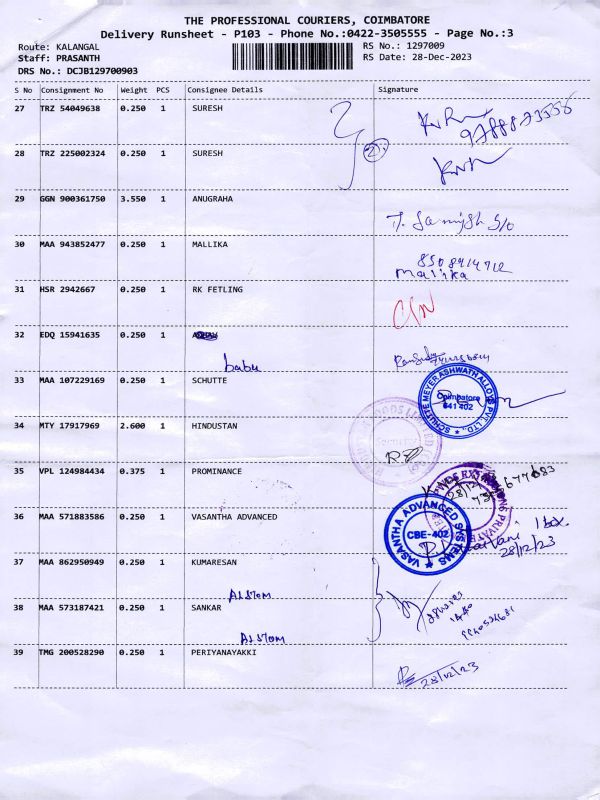 THE PROFESSIONAL COURIERS, COIMBATORE
Delivery Runsheet - P103 - Phone No.:0422-3505555 - Page No.:3
Route: KALANGAL
Staff: PRASANTH
DRS No.: DCJB129700903
RS No.: 1297009
RS Date: 28-Dec-2023
S No Consignment No Weight PCS Consignee Details Signature
27 TRZ 54049638 0.250 1 SURESH
2
28 TRZ 225002324 0.250 1 SURESH
29 GGN 900361750 3.550 1 ANUGRAHA
S/o
30 MAA 943852477 0.250 1 MALLIKA
Malika
31 HSR 2942667 0.250 1 RK FETLING
32 EDQ 15941635 0.250 1
babu
33 MAA 107229169 0.250 1 SCHUTTE
SCHUTTE MEYER ASHWATH ALLOYS PVT. LTD.,
Coimbatore
641 402
34 MTY 17917969 2.600 1 HINDUSTAN
Security
35 VPL 124984434 0.375 1 PROMINANCE
36 MAA 571883586 0.250 1 VASANTHA ADVANCED
VASANTHA ADVANCED SYSTEMS
CBE-402
28/12/23
37 MAA 862950949 0.250 1 KUMARESAN
Alstom
38 MAA 573187421 0.250 1 SANKAR
Alstom
39 TMG 200528290 0.250 1 PERIYANAYAKKI
28/12/23